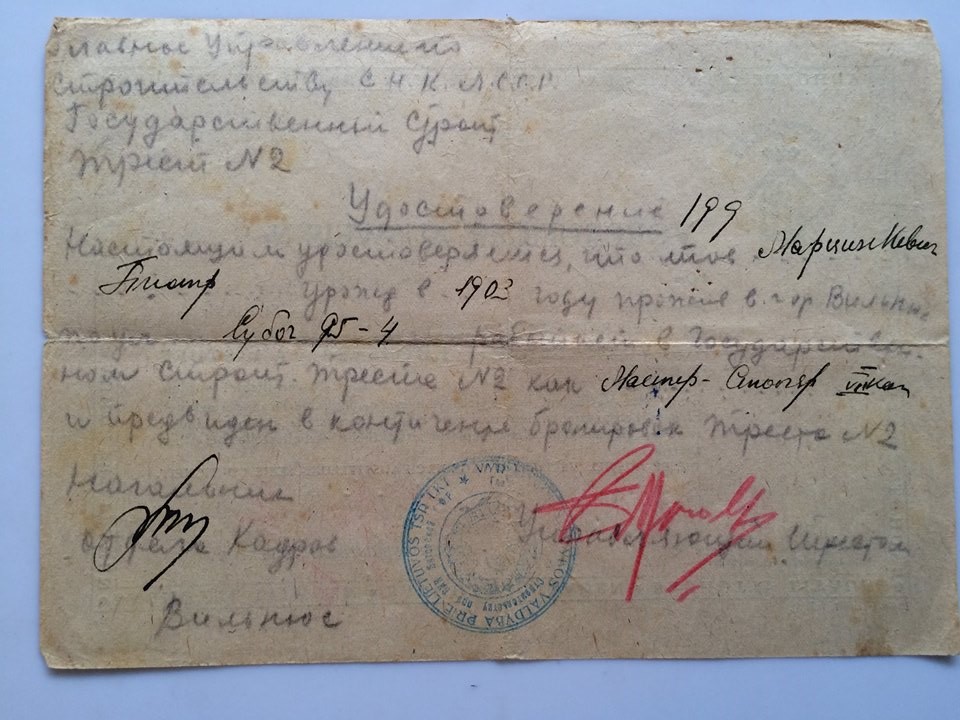 Главное Управление по
строительству С.Н.К. Л.С.С.Р.
Государственный Строит
Трест N2
Удостоверение 199
Настоящим удостоверяется, что тов Марцинкевич
Пиотр урожд в 1903 году прожив в гор Вильню-
Субоч 95-4 работает в Государствен-
ном Строит. Тресте N2 как Мастер-Столяр
и предвиден в контингенте бронировок Треста N2
Начальник
отдела Кадров
Управляющий Трестом
Вильнюс
LIETUVOS TSR LKT
VALDYBA PRIE